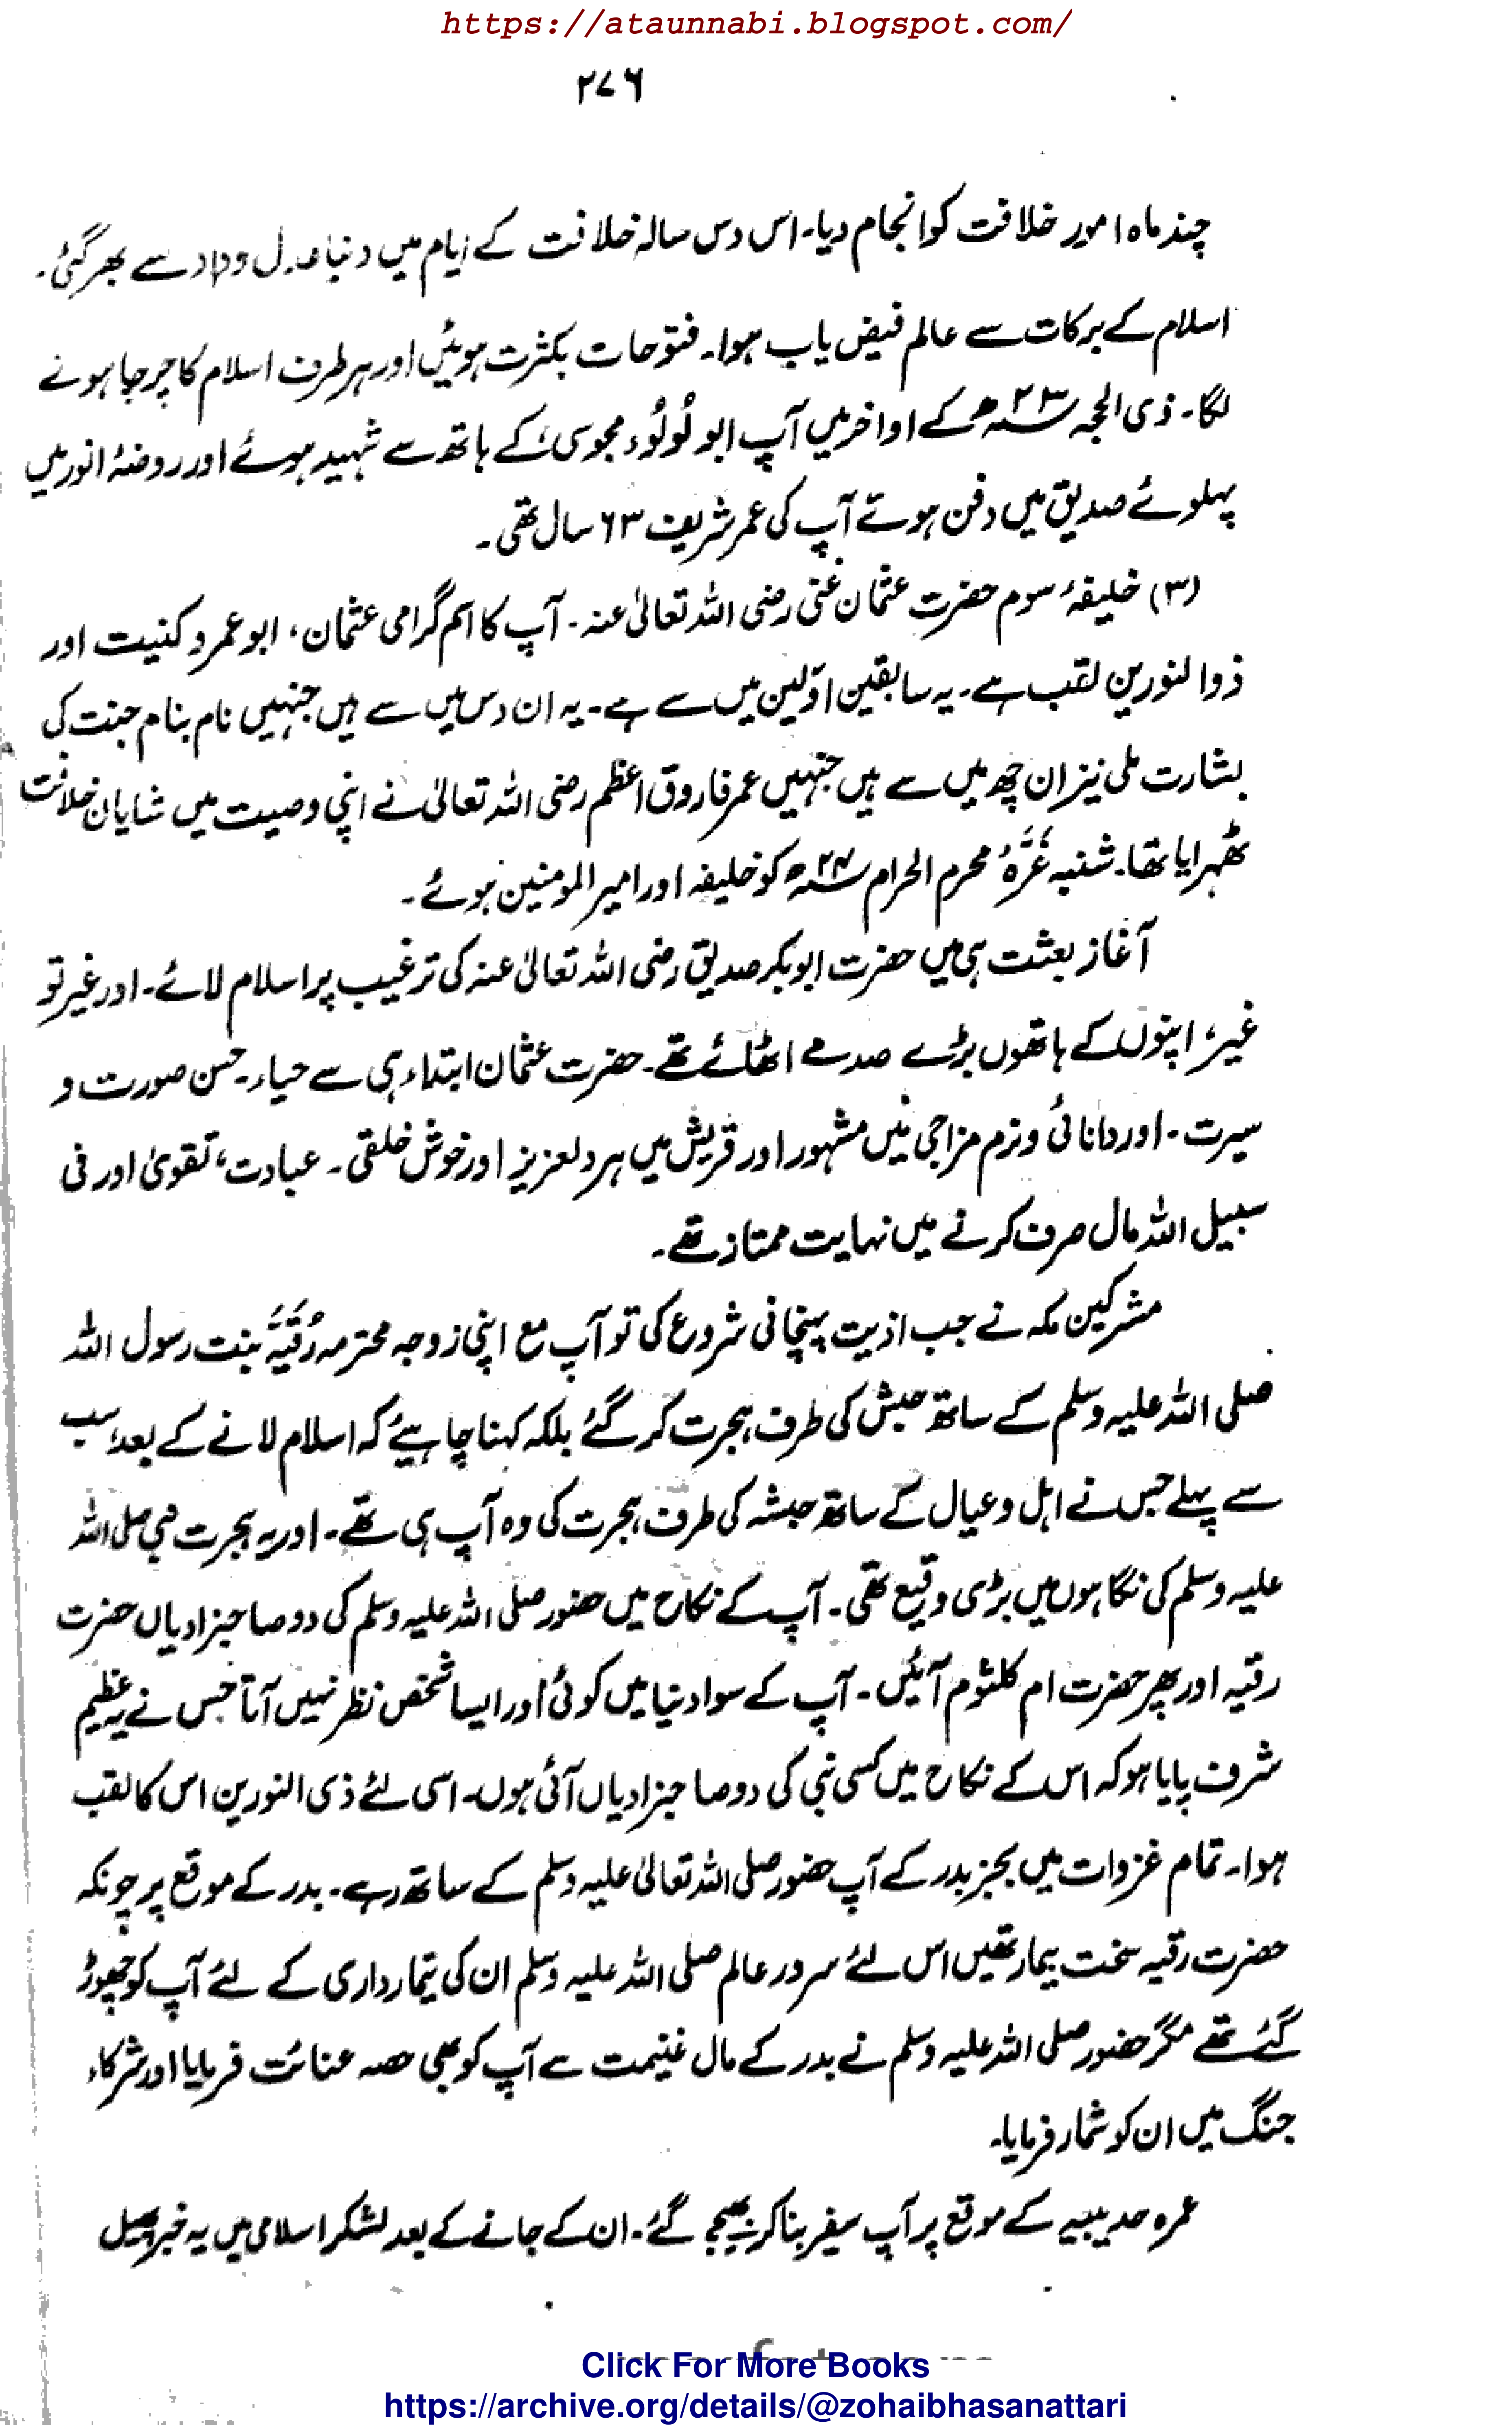 https://ataunnabi.blogspot.com/
۲۷۶
چند ماہ امور خلافت کو انجام دیا۔ اس دس سالہ خلافت کے ایام میں دنیا عدل و داد سے بھر گئی۔
اسلام کے برکات سے عالم فیض یاب ہوا۔ فتوحات بکثرت ہوئیں اور ہر طرف اسلام کا چرچا ہونے
لگا۔ ذی الحجہ ۲۳ھ کے اواخر میں آپ ابو لُولُوء مجوسی کے ہاتھ سے شہید ہوئے اور روضۂ انور میں
پہلوئے صدیق میں دفن ہوتے آپ کی عمر شریف ۶۳ سال تھی۔
(۳) خلیفۂ سوم حضرت عثمان غنی رضی اللہ تعالیٰ عنہ۔ آپ کا اسم گرامی عثمان، ابو عمرو کنیت اور
ذوالنورین لقب ہے۔ یہ سابقین اوّلین میں سے ہے۔ یہ ان دس میں سے ہیں جنہیں نام بنام جنت کی
بشارت ملی نیز ان چھ میں سے ہیں جنہیں عمر فاروق اعظم رضی اللہ تعالیٰ نے اپنی وصیت میں شایان خلافت
ٹھہرایا تھا۔ شنبہ غُرَّہُ محرم الحرام ۲۴ھ کو خلیفہ اور امیر المومنین ہوئے۔
آغاز بعثت ہی میں حضرت ابوبکر صدیق رضی اللہ تعالیٰ عنہ کی ترغیب پر اسلام لائے۔ اور غیر تو
غیر، اپنوں کے ہاتھوں بڑے صدمے اٹھائے تھے۔ حضرت عثمان ابتداء ہی سے حیاء۔ حسن صورت و
سیرت۔ اور دانائی و نرم مزاجی میں مشہور اور قریش میں ہر دلعزیز اور خوش خلقی۔ عبادت، تقویٰ اور فی
سبیل اللہ مال صرف کرنے میں نہایت ممتاز تھے۔
مشرکین مکہ نے جب اذیت پہنچانی شروع کی تو آپ مع اپنی زوجہ محترمہ رُقَیَّہ بنت رسول اللہ
صلی اللہ علیہ وسلم کے ساتھ حبش کی طرف ہجرت کر گئے بلکہ کہنا چاہیئے کہ اسلام لانے کے بعد سب
سے پہلے جس نے اہل و عیال کے ساتھ حبشہ کی طرف ہجرت کی وہ آپ ہی تھے۔ اور یہ ہجرت نبی صلی اللہ
علیہ وسلم کی نگاہوں میں بڑی وقیع تھی۔ آپ کے نکاح میں حضور صلی اللہ علیہ وسلم کی دو صاحبزادیاں حضرت
رقیہ اور پھر حضرت ام کلثوم آئیں۔ آپ کے سوا دنیا میں کوئی اور ایسا شخص نظر نہیں آتا جس نے یہ عظیم
شرف پایا ہو کہ اس کے نکاح میں کسی نبی کی دو صاحبزادیاں آئی ہوں۔ اسی لئے ذی النورین اس کا لقب
ہوا۔ تمام غزوات میں بجز بدر کے آپ حضور صلی اللہ تعالیٰ علیہ وسلم کے ساتھ رہے۔ بدر کے موقع پر چونکہ
حضرت رقیہ سخت بیمار تھیں اس لئے سرور عالم صلی اللہ علیہ وسلم ان کی تیمارداری کے لئے آپ کو چھوڑ
گئے تھے مگر حضور صلی اللہ علیہ وسلم نے بدر کے مال غنیمت سے آپ کو بھی حصہ عنائت فرمایا اور شرکاء
جنگ میں ان کو شمار فرمایا۔
عمرہ حدیبیہ کے موقع پر آپ سفیر بنا کر بھیجے گئے۔ ان کے جانے کے بعد لشکر اسلامی میں یہ خبر پھیل
Click For More Books
https://archive.org/details/@zohaibhasanattari